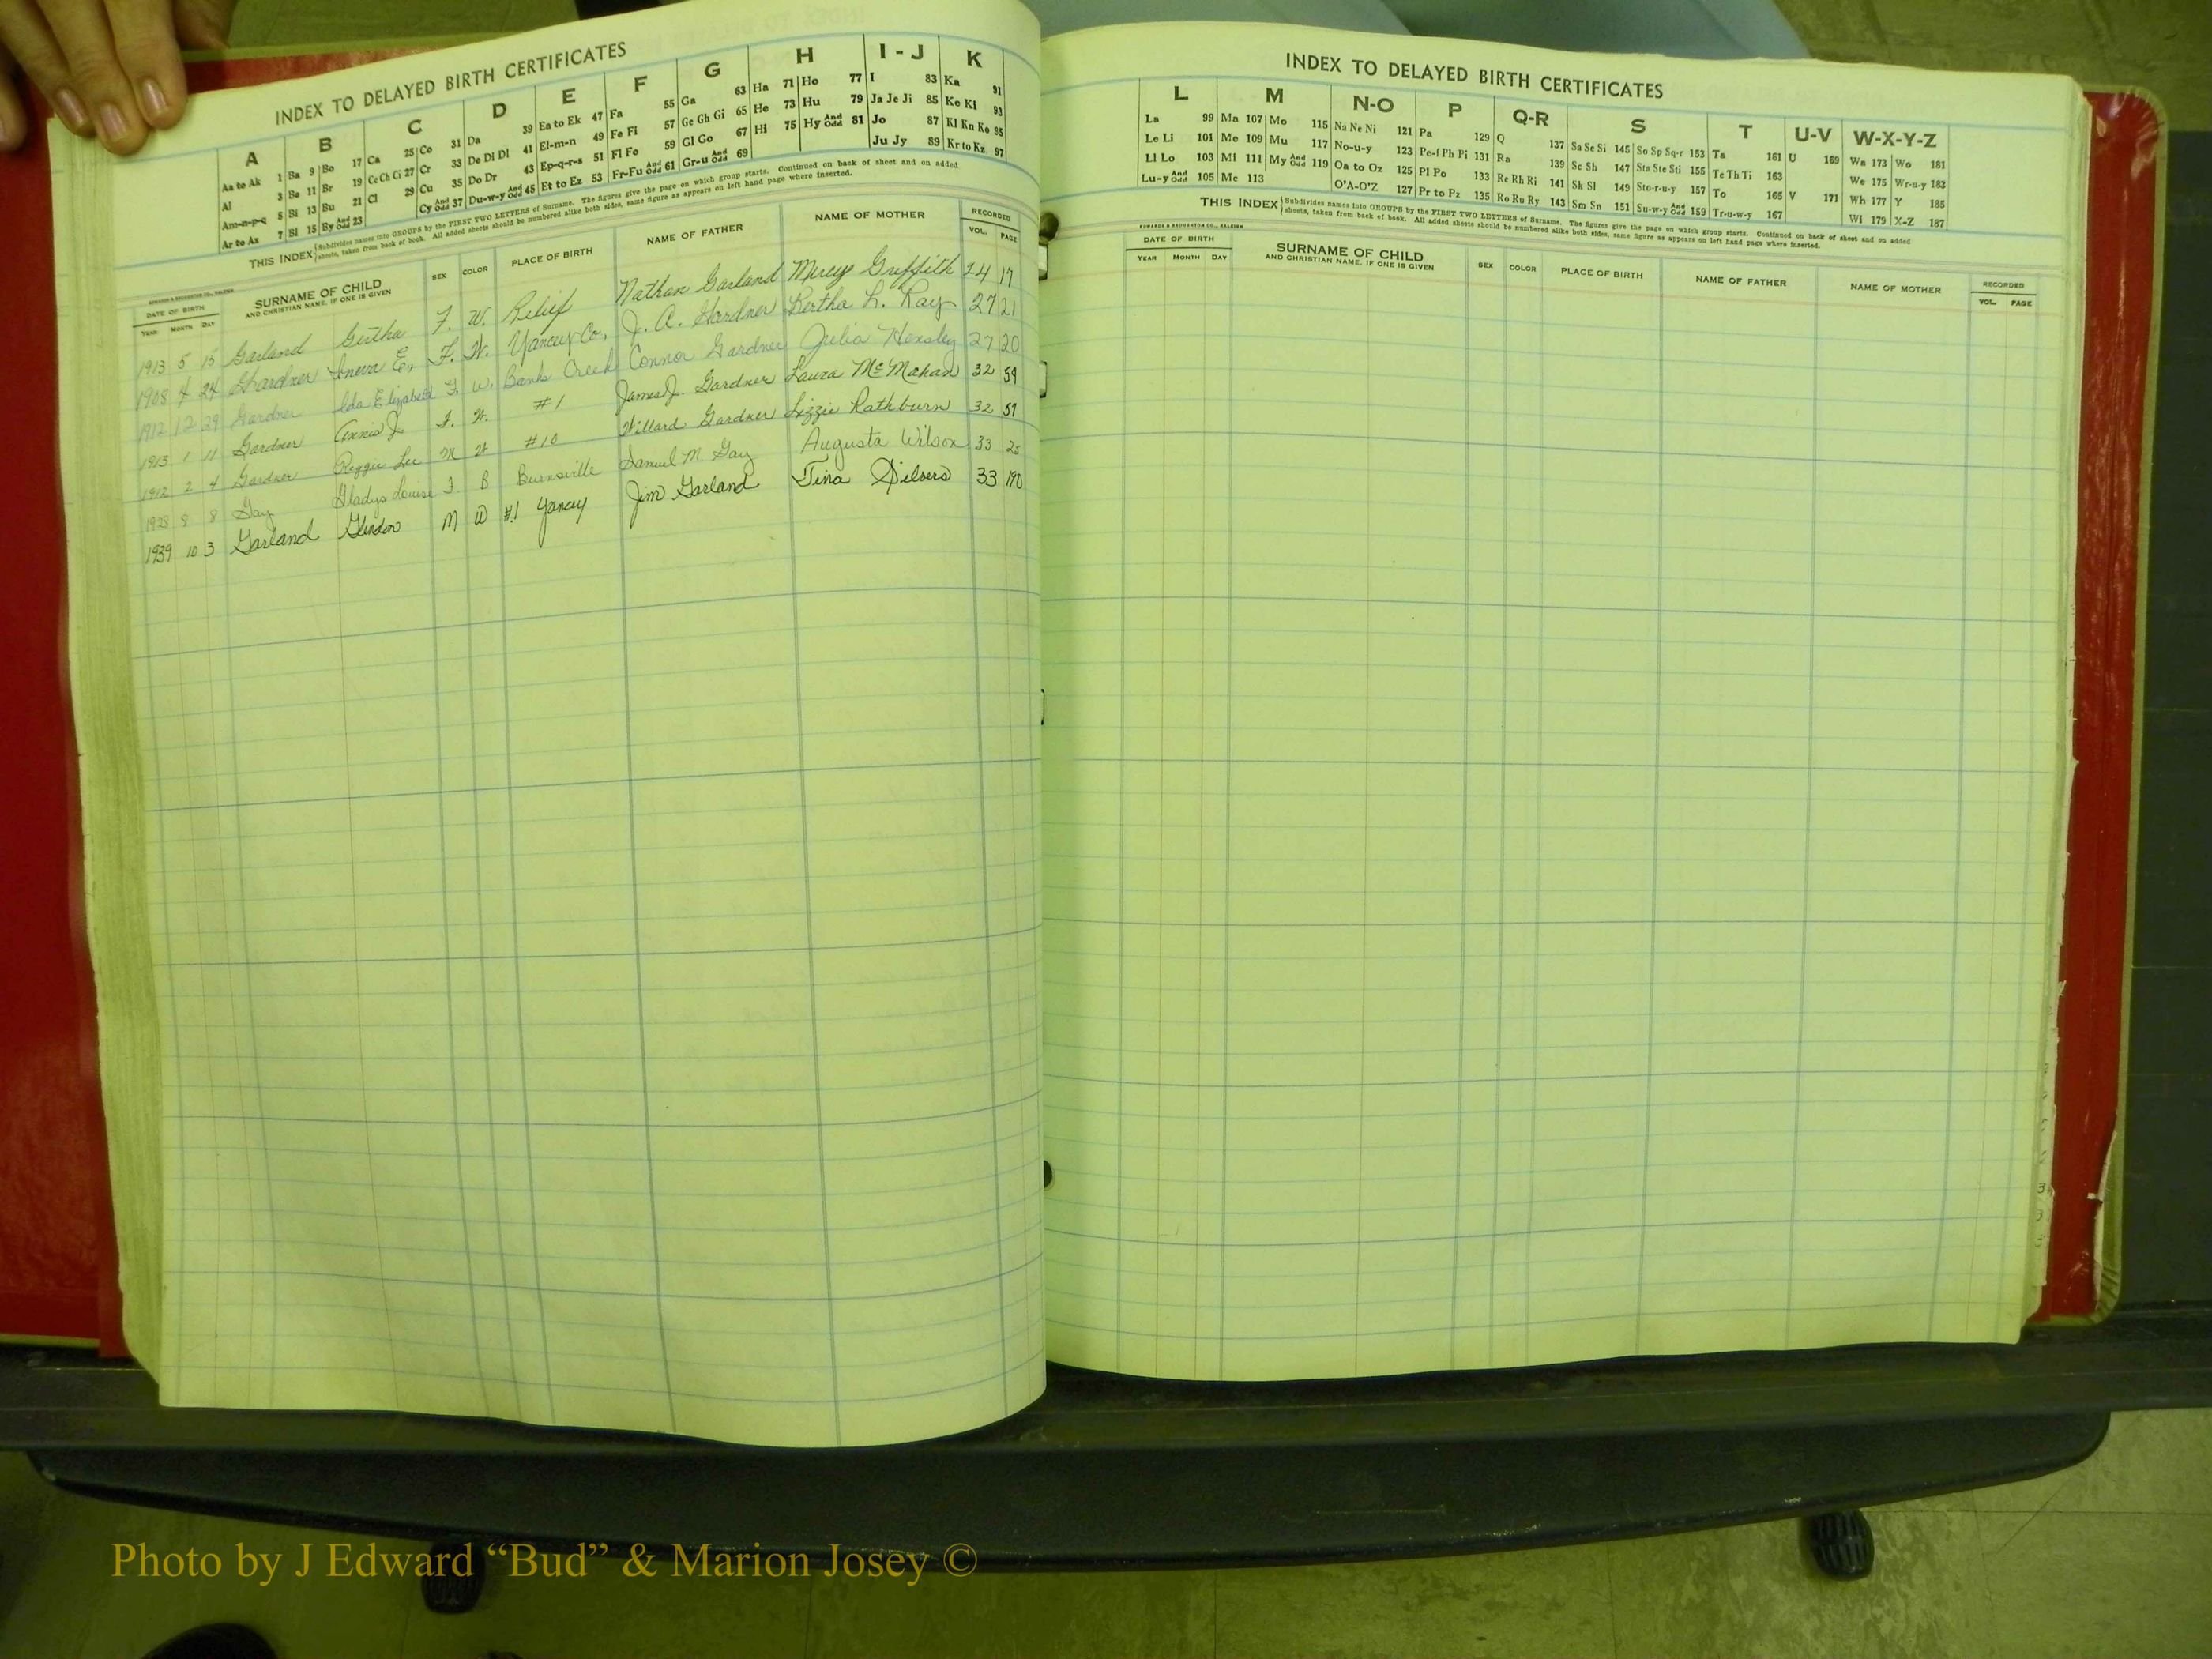 INDEX TO DELAYED BIRTH CERTIFICATES
A B C D E F G H I - J K
Aa to Ak 1 Ba 9 Bo 17 Ca 25 Co 31 Da 39 Ea to Ek 47 Fa 55 Ga 63 Ha 71 Ho 77 I 83 Ka 91
Al 3 Be 11 Br 19 Ce Ch Ci 27 Cr 33 De Di Dl 41 El-m-n 49 Fe Fi 57 Ge Gh Gi 65 He 73 Hu 79 Ja Je Ji 85 Ke Ki 93
Am-n-p-q 5 Bi 13 Bu 21 Cl 29 Cu 35 Do Dr 43 Ep-q-r-s 51 Fl Fo 59 Gl Go 67 Hi 75 Hy And Odd 81 Jo 87 Kl Kn Ko 95
Ar to Az 7 Bl 15 By And Odd 23 Cy And Odd 37 Du-w-y And Odd 45 Et to Ez 53 Fr-Fu And Odd 61 Gr-u And Odd 69 Ju Jy 89 Kr to Kz 97
THIS INDEX Subdivides names into GROUPS by the FIRST TWO LETTERS of Surname. The figures give the page on which group starts. Continued on back of sheet and on added
sheets, taken from back of book. All added sheets should be numbered alike both sides, same figure as appears on left hand page where inserted.
DATE OF BIRTH SURNAME OF CHILD SEX COLOR PLACE OF BIRTH NAME OF FATHER NAME OF MOTHER RECORDED
YEAR MONTH DAY AND CHRISTIAN NAME, IF ONE IS GIVEN VOL. PAGE
1913 5 15 Garland Gertha F. W. Relief Nathan Garland Griffith 24 17
1908 4 24 E. F. W. Yancey Co. J. A. Gardner L. Ray 27 21
1912 12 29 Gardner Ida Elizabeth F. W. Banks Creek Connor Gardner Julia Hensley 27 20
1913 1 11 Gardner Annis J. F. W. #1 James J. Gardner Laura McMahan 32 59
1912 2 4 Gardner Lee M W #10 Willard Gardner Lizzie Rathburn 32 57
1928 8 8 Gay Gladys Louise F B Burnsville Samuel M. Gay Augusta Wilson 33 25
1939 10 3 Garland M W #1 Yancey Jim Garland Tina Silvers 33 190
INDEX TO DELAYED BIRTH CERTIFICATES
L M N-O P Q-R S T U-V W-X-Y-Z
La 99 Ma 107 Mo 115 Na Ne Ni 121 Pa 129 Q 137 Sa Se Si 145 So Sp Sq-r 153 Ta 161 U 169 Wa 173 Wo 181
Le Li 101 Me 109 Mu 117 No-u-y 123 Pe-f Ph Pi 131 Ra 139 Sc Sh 147 Sta Ste Sti 155 Te Th Ti 163 We 175 Wr-u-y 183
Ll Lo 103 Mi 111 My And Odd 119 Oa to Oz 125 Pl Po 133 Re Rh Ri 141 Sk Sl 149 Sto-r-u-y 157 To 165 V 171 Wh 177 Y 185
Lu-y And Odd 105 Mc 113 O'A-O'Z 127 Pr to Pz 135 Ro Ru Ry 143 Sm Sn 151 Su-w-y And Odd 159 Tr-u-w-y 167 Wi 179 X-Z 187
THIS INDEX Subdivides names into GROUPS by the FIRST TWO LETTERS of Surname. The figures give the page on which group starts. Continued on back of sheet and on added
sheets, taken from back of book. All added sheets should be numbered alike both sides, same figure as appears on left hand page where inserted.
EDWARDS & BROUGHTON CO., RALEIGH
DATE OF BIRTH SURNAME OF CHILD SEX COLOR PLACE OF BIRTH NAME OF FATHER NAME OF MOTHER RECORDED
YEAR MONTH DAY AND CHRISTIAN NAME, IF ONE IS GIVEN VOL. PAGE
Photo by J Edward “Bud” & Marion Josey ©